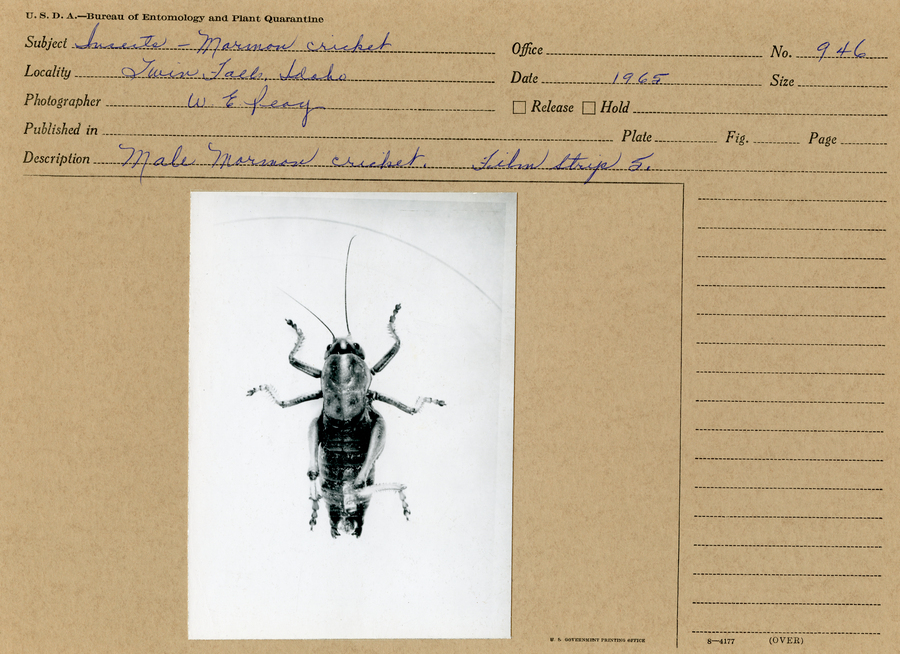 U. S. D. A.—Bureau of Entomology and Plant Quarantine
Subject Insects - Mormon cricket Office No. 946
Locality Twin Falls, Idaho Date 1965 Size
Photographer W E Peay Release Hold
Published in Plate Fig. Page
Description Male Mormon cricket. Film Strip 5.
U. S. GOVERNMENT PRINTING OFFICE 8—4177 (OVER)